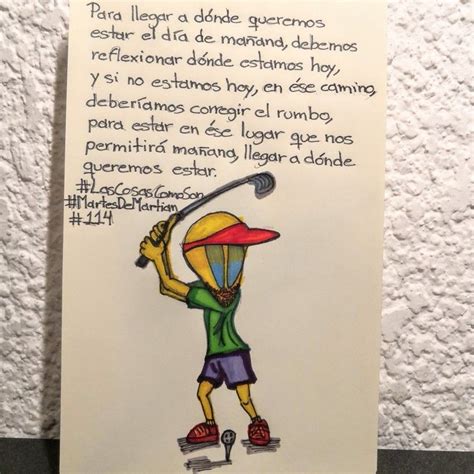 Para llegar a dónde queremos
estar el día de mañana, debemos
reflexionar dónde estamos hoy,
y si no estamos hoy, en ése camino,
deberíamos corregir el rumbo,
para estar en ése lugar que nos
permitirá mañana, llegar a dónde
queremos estar.
#LasCosasComoSon
#MartesDeMartian
#114